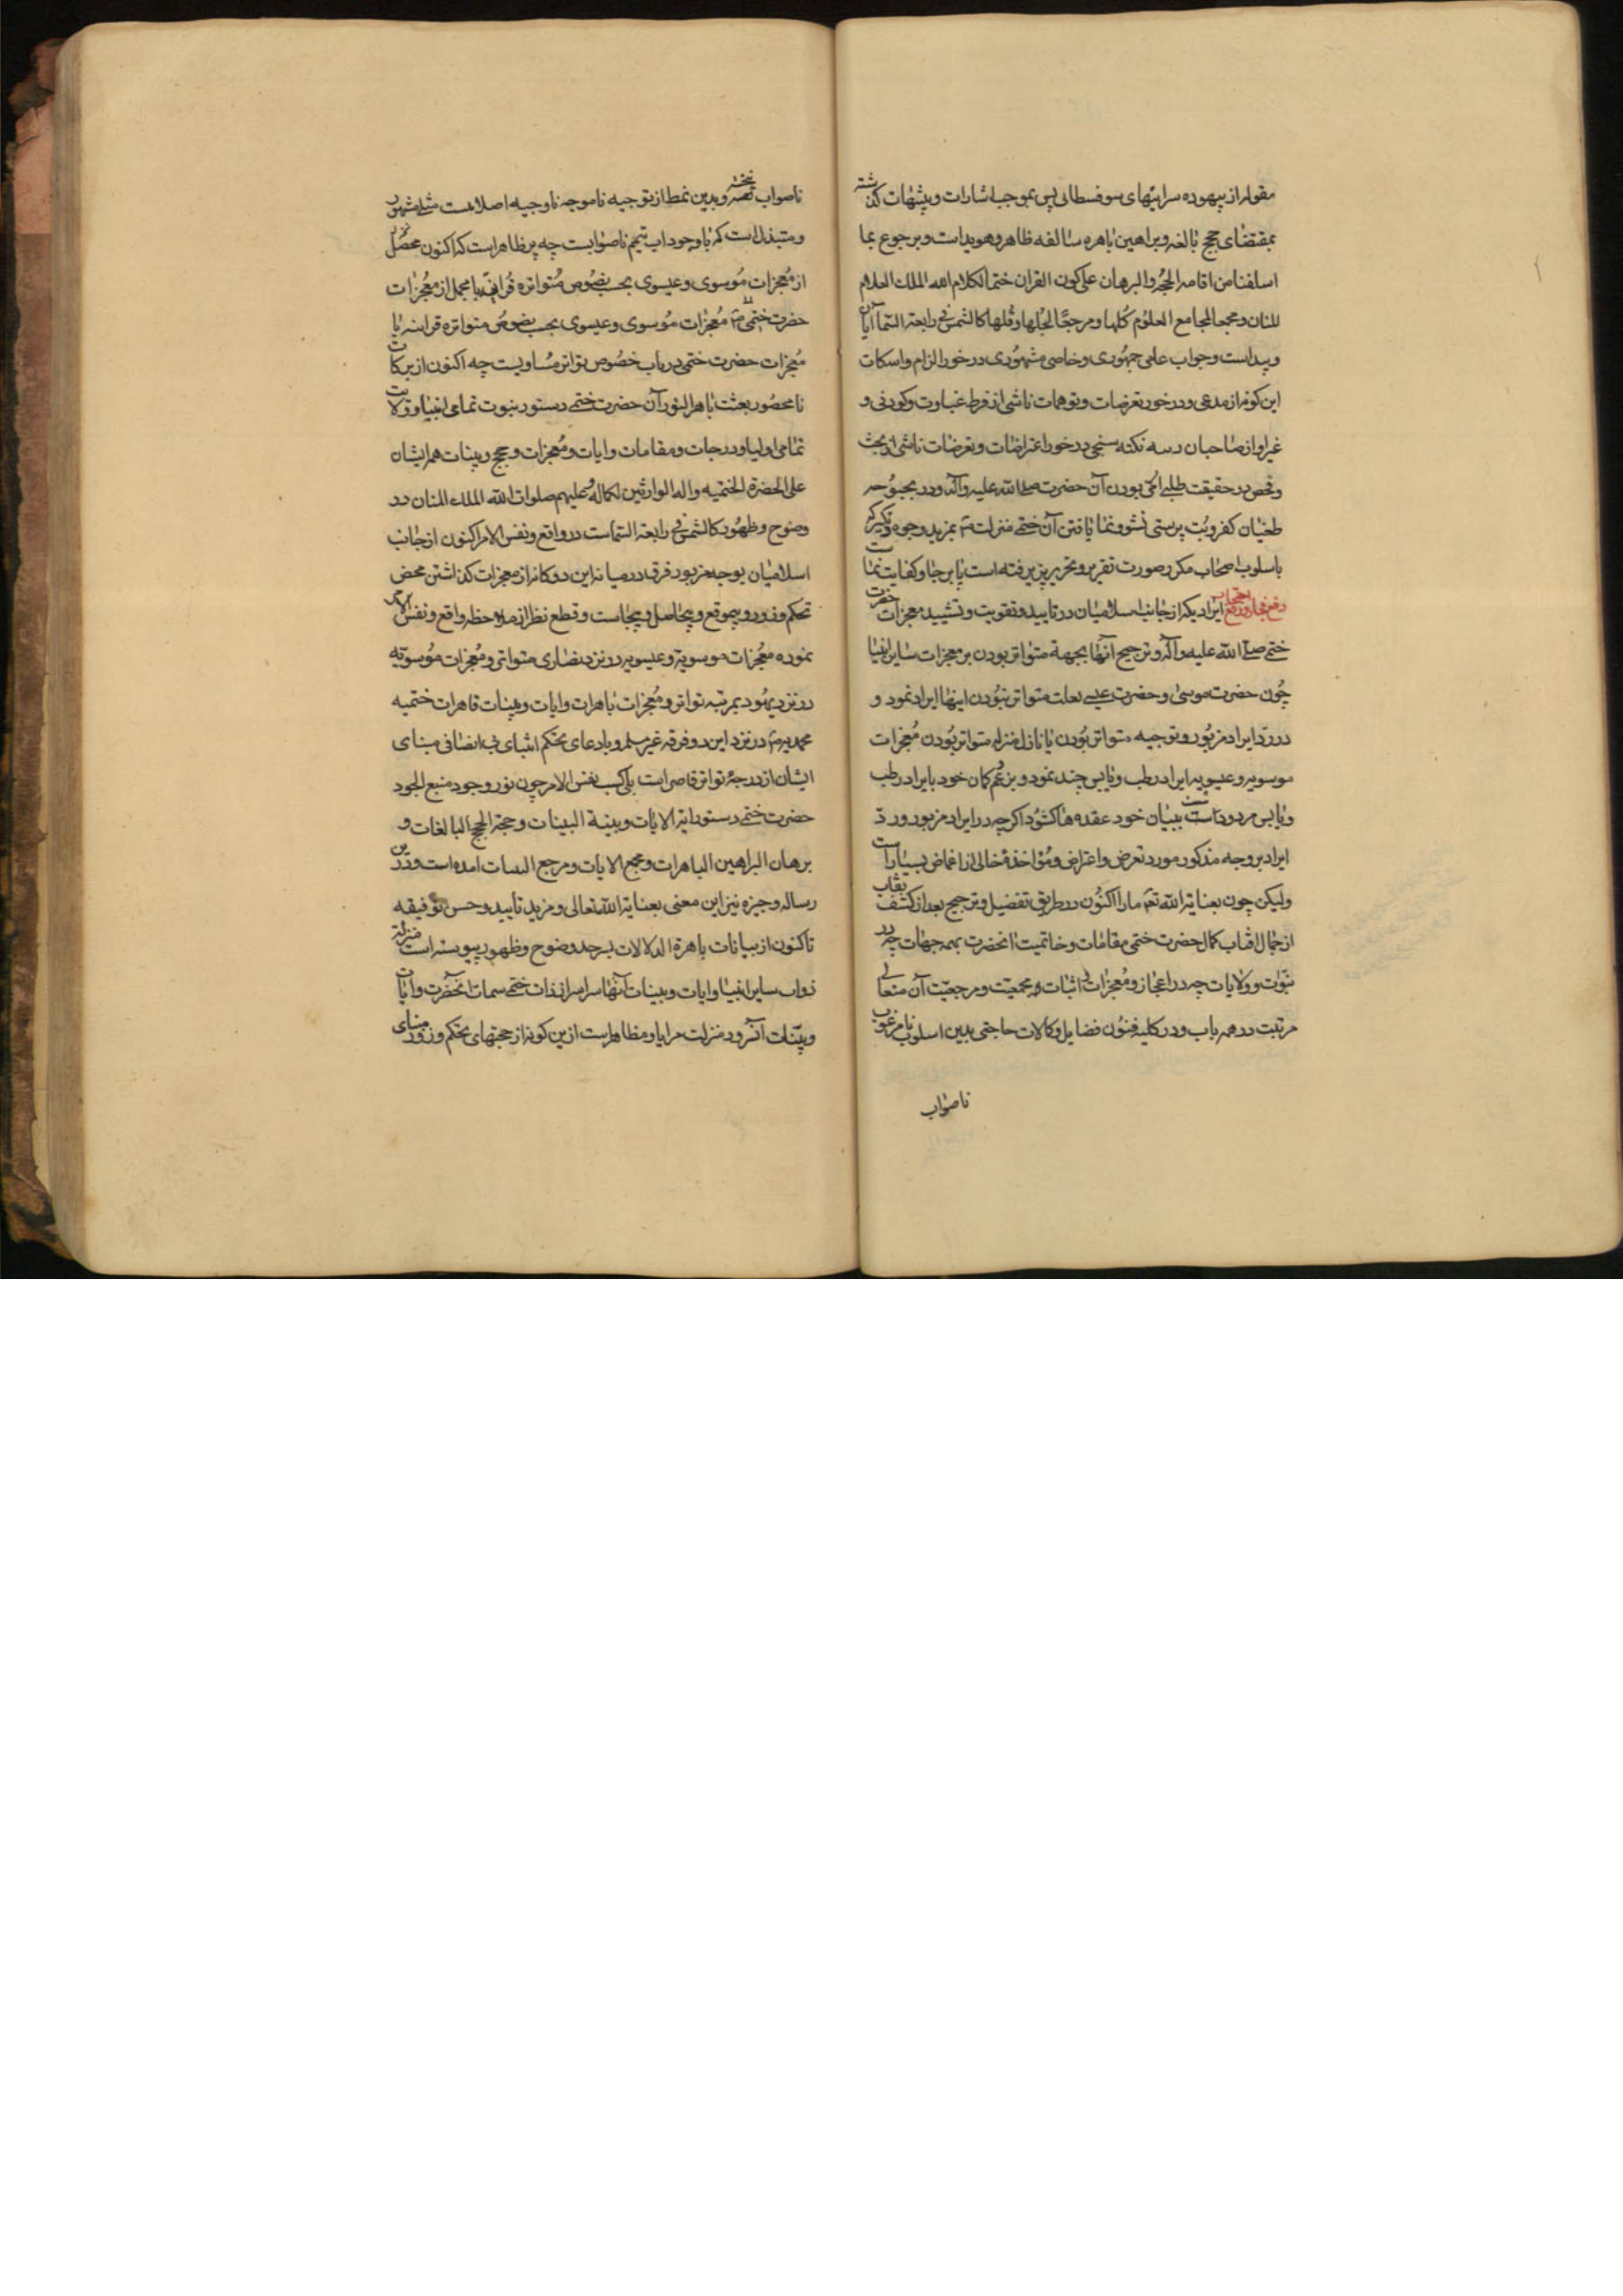 مقوله از بیهوده سرائیهای سوفسطائی پس بموجب اشارات وپیشهات گذشته
بمقتضای حجج بالغه وبراهین باهره سٰالفه ظاهر وهویداست وبرجوع بما
اسلفنا من اقامه الحجه والبرهان علی کون القران ختما لکلام الله الملک العلام
للمنان ومجمعا لمجامع العلوم کلها ومرجعًا لجلها وقلها کالشمس فی رابعة السّمآ
وپیداست وجواب علمی جمهوری وخاصی مشهوری در خور الزام واسکات
این کونه از مدعی ودر خور تعرضات وتوهمات ناشی از فرط غباوت وکودنی و
غیر او از صاحبان رسه نکته سنجی در خور اعتراضات وتعرضات ناشی از بحث
وفحص در حقیقت طلبی امّی بودن آن حضرت صلی الله علیه وآله ودر بحبوحه
طغیان کفر وبُت پرستی نشو ونما یافتن آن ختمی منزلت بمزید وجوه
باسلوب اصحاب مکرر صورت تقریر وتحریر پذیرفته است پا برجا وکفایت نماست
ایرادیکه از جانب اسلامیان در تایید وتقویت وتشیید معجزات حضرت
ختمی صلی الله علیه وآله وترجیح آنها بجهة متواتر بودن بر معجزات سٰایر انبیا
چون حضرت موسیٰ وحضرت عیسی بعلت متواتر نبودن اینها ایراد نمود و
در رد ایراد مزبور وتوجیه متواتر بودن یا نازل منزله متواتر بودن معجزات
موسویه وعیسویه ایراد رطب ویابس چند نمود وبزعم کمان خود بایراد رطب
ویابس مردود ببیان خود عقده ها کشود اکرچه در ایراد مزبور ورد
ایراد بروجه مذکور مورد تعرض واعتراض ومؤاخذهٔ خالی از اغماض بسیار است
ولیکن چون بعنایة الله تعٓ ما را اکنون در طریق تفضیل وترجیح بعد از کشف نقاب
از جمال افتاب کمال حضرت ختمی مقامات وخاتمیت انحضرت بهمه جهات چه در
نبوّت وولایات چه در اعجاز ومعجزات اثبات ومجمعیّت ومرجعیّت آن متعالی
مرتبت در همه باب ودر کلیه فنون فضایل وکمالات حاجتی بدین اسلوب نامرغوب
ناصواب
ناصواب وبدین نمط از توجیه ناموجه ناوجیه اصلا نیست مثل مشهور
ومتبذل است که با وجود اب تیمم ناصوابست چه پر ظاهر است که اکنون محصل
از معجزات موسوی وعیسوی بحسب نصوص متواتره قرانی یا مجمل از معجزات
حضرت ختمی معجزات موسوی وعیسوی بحسب نصوص متواتره قرانیه با
معجزات حضرت ختمی در باب خصوص تواتر مساویست چه اکنون از برکات
نامحصور بعثت باهر النور آن حضرت ختمی دستور نبوت تمامی انبیا وولایت
تمامی اولیا ودرجات ومقامات وایات ومعجزات وحجج وبینات هم ایشان
علی الحضرة الختمیه واله الوارثین لکماله وعلیهم صلوات الله الملک المنان در
وضوح وظهور کالشمس فی رابعة السّماست در واقع ونفس الامر اکنون از جانب
اسلامیان بوجه مزبور فرق در میانه این دو کانه از معجزات کذاشتن محض
تحکم وزور وبیموقع وبیحاصل وبیجاست وقطع نظر از ملاحظه واقع ونفس الامر
نموده معجزات موسویة وعیسویه در نزد نصاری متواتر ومعجزات موسویّه
در نزد یهود بمرتبه تواتر ومعجزات باهرات وایات وبینات قاهرات ختمیه
محمدیه در نزد این دو فرقه غیر مسلم وبادعای تحکم انتمای بی انصافی مبنای
ایشان از درجهٔ تواتر قاصر است بلکه بحسب نفس الامر چون نور وجود منبع الجود
حضرت ختمی دستور ایة الایات وبینة البینات وحجة الحجج البالغات و
برهان البراهین الباهرات ومجمع الایات ومرجع البینات امده است ودر این
رساله وجیزه نیز این معنی بعنایة الله تعالی ومزید تأیید وحسن توفیقه
تاکنون از بیانات باهرة الدلالات بسر حد وضوح وظهور پیوسته است
ذوات سایر انبیا وایات وبینات آنها سراسر از ذات ختمی سمات آنحضرت وایات
وبیّنات آنسرور در منزلت مرایا ومظاهر است ازین کونه از حجتهای تحکم وزور مبنای